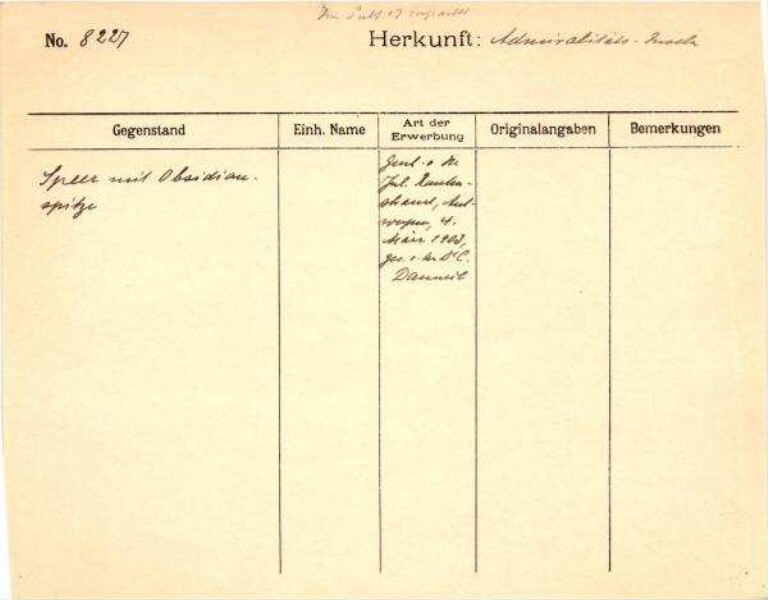 No. 8227
Herkunft: Admiralitäts-Inseln
Gegenstand
Einh. Name
Art der
Erwerbung
Originalangaben
Bemerkungen
Speer mit Obsidian-
spitze
Jul. Rauten-
strauch, Ant-
werpen, 4.
März 1903,
ges. v. Hr. C.
Danneil